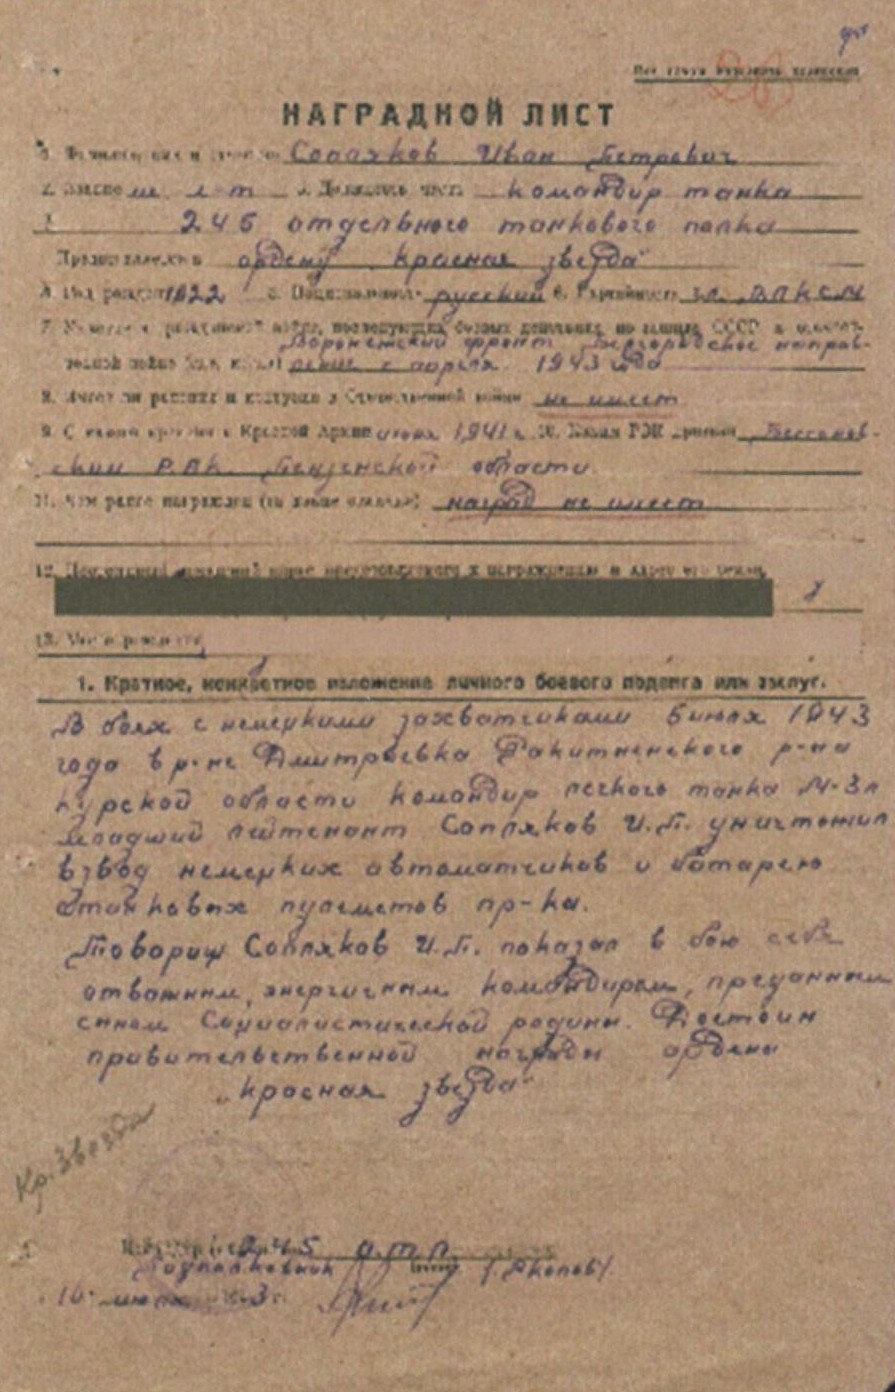 Все графы заполнять полностью
НАГРАДНОЙ ЛИСТ
1. Фамилия, имя и отчество Сопляков Иван Петрович
2. Звание мл л-т 3. Должность, часть командир танка
245 отдельного танкового полка
Представляется к ордену „Красная звезда"
4. Год рождения 1922 5. Национальность русский 6. Партийность чл. ВЛКСМ
7. Участие в гражданской войне, последующих боевых действиях по защите СССР и отечест-
Воронежский фронт Белгородское направ-
венной войне (где, когда) ление с апреля 1943 года
8. Имеет ли ранения и контузии в Отечественной войне не имеет
9. С какого времени в Красной Армии июня 1941 г. 10. Каким РВК призван Бессонов-
ский РВК. Пензенской области
11. Чем ранее награжден (за какие отличия) наград не имеет
12. Постоянный домашний адрес представляемого к награждению и адрес его семьи
13. Место рождения
1. Краткое, конкретное изложение личного боевого подвига или заслуг.
В боях с немецкими захватчиками 6 июля 1943
года в р-не Дмитриевка Ракитненского р-на
Курской области командир легкого танка М-3л
младший лейтенант Сопляков И.П. уничтожил
взвод немецких автоматчиков и батарею
станковых пулеметов пр-ка.
Товарищ Сопляков И.П. показал в бою себя
отважным, энергичным командиром, преданным
сыном Социалистической родины. Достоин
правительственной награды ордена
„Красная звезда"
Кр. Звезда
Командир 245 о.т.п.
Подполковник /Акопов/
10 июля 43 г.